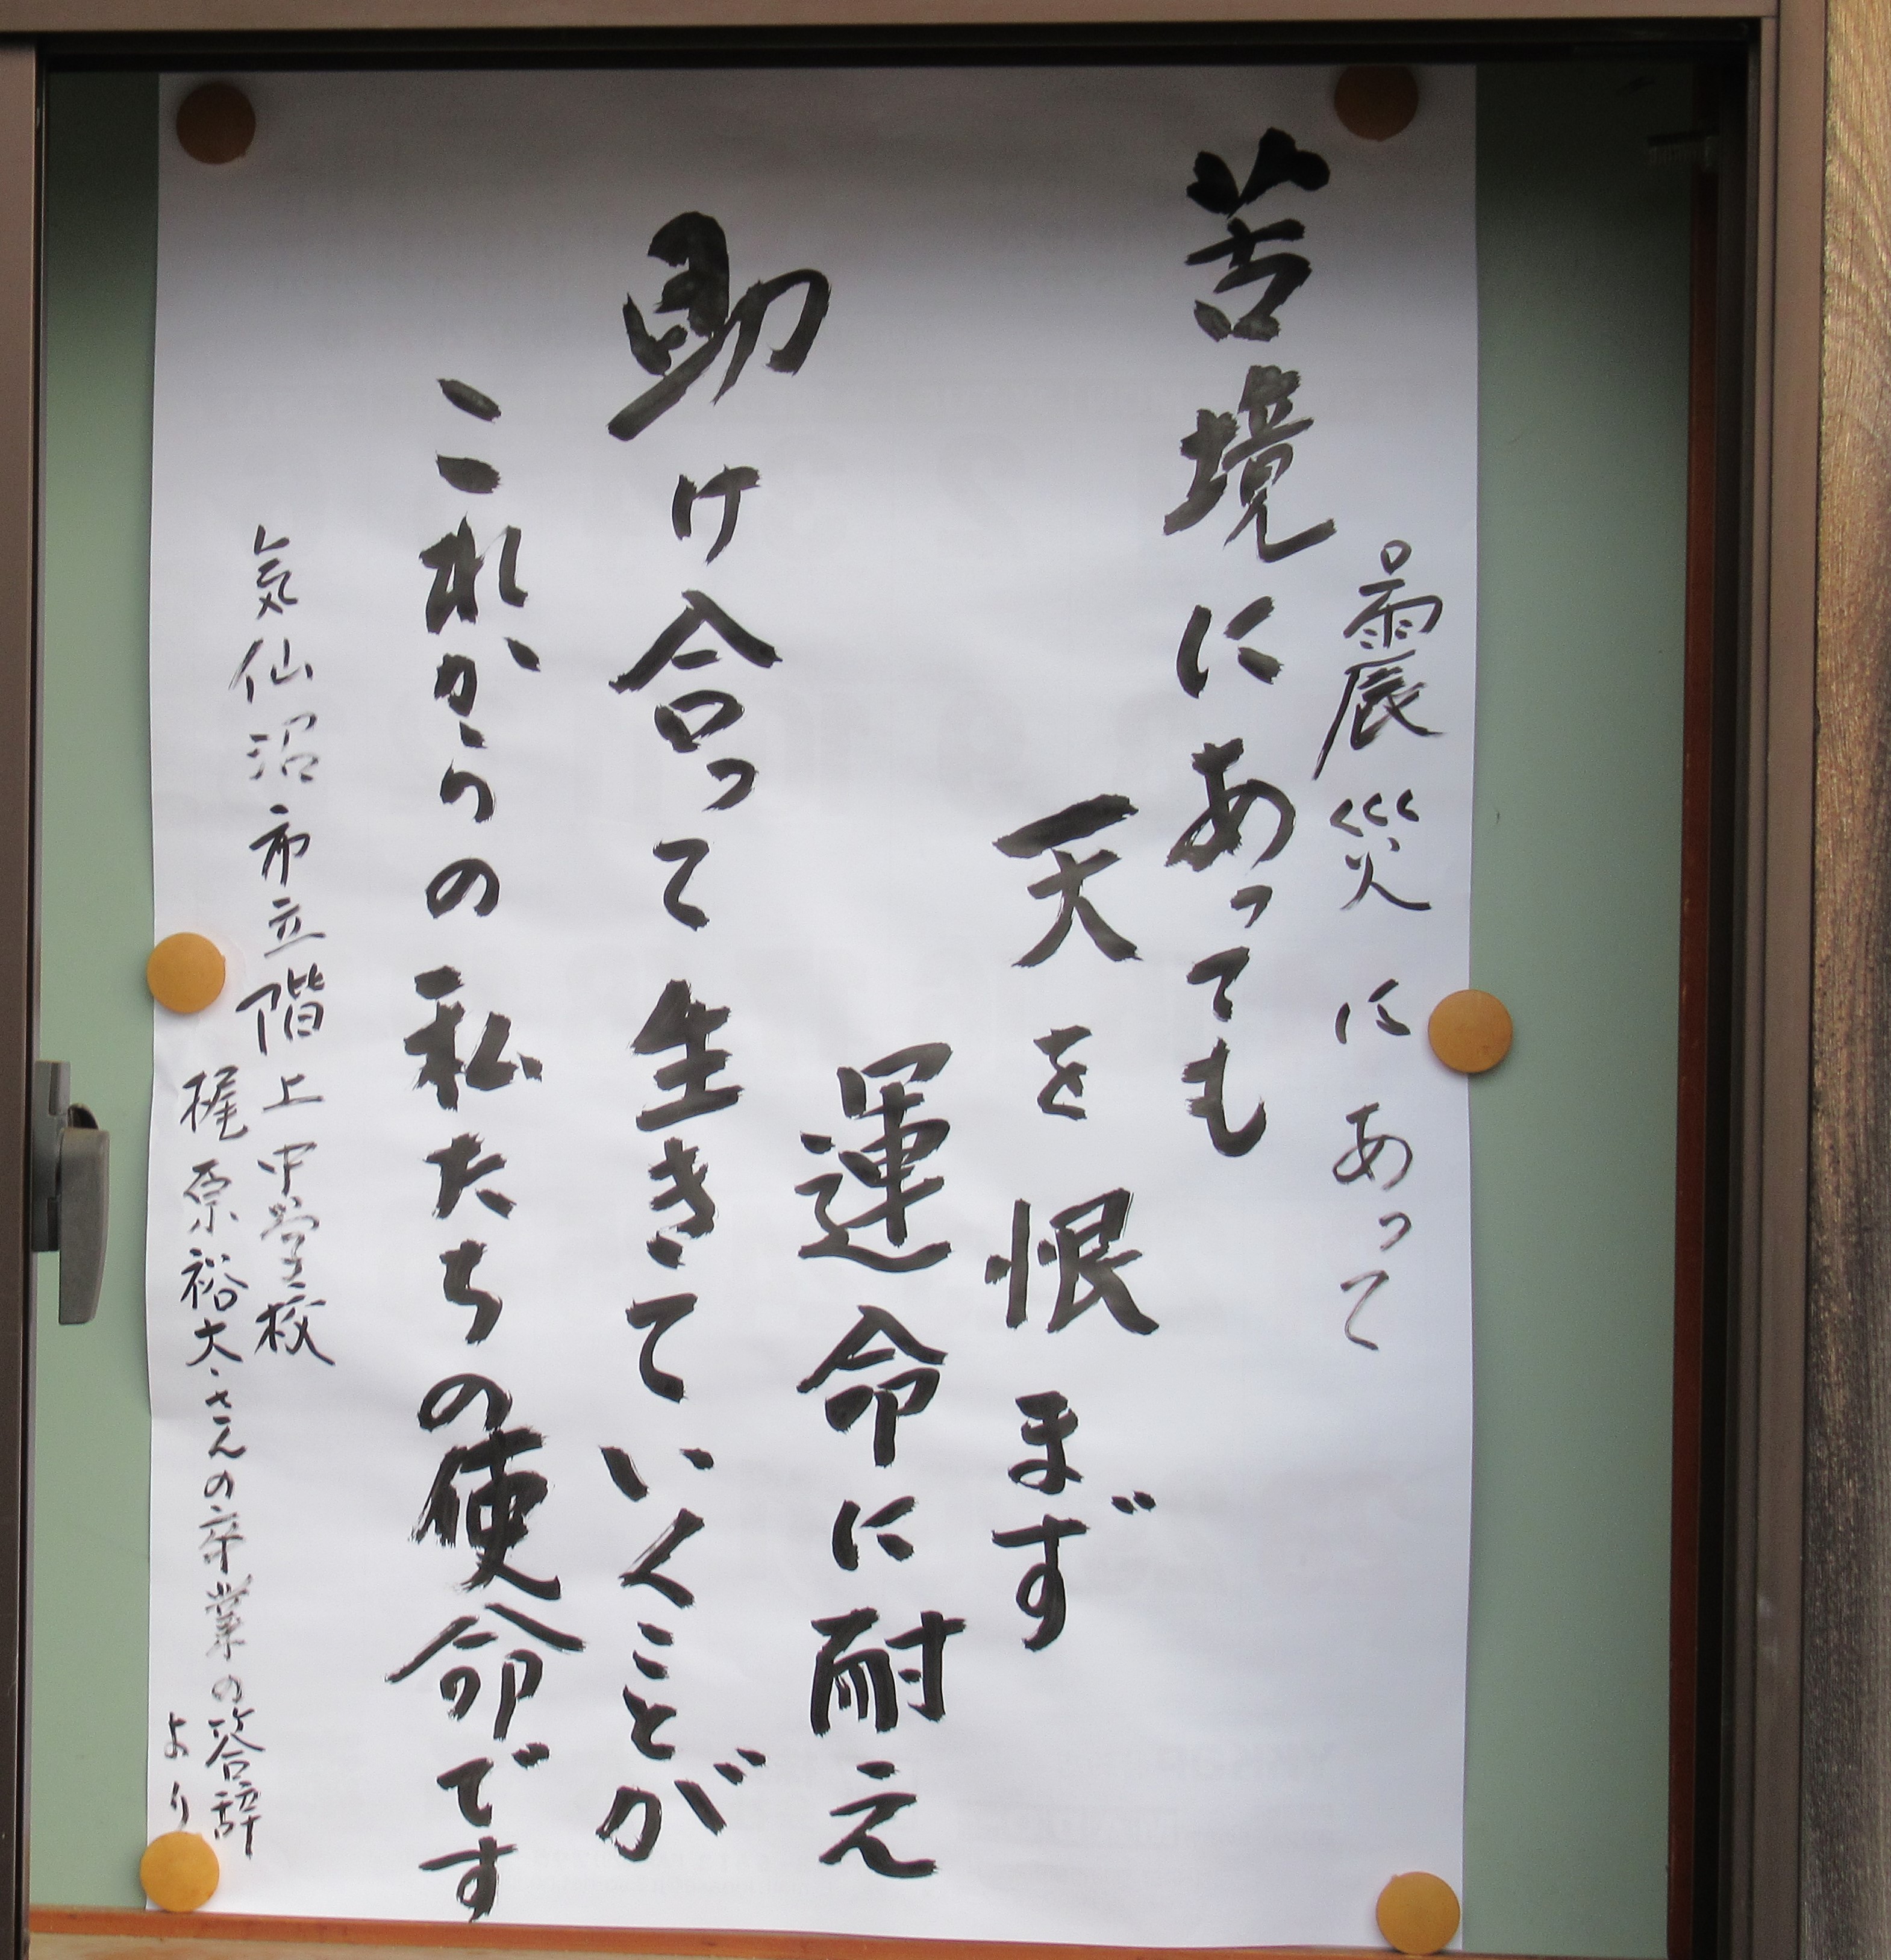 ○震災にあって
苦境にあっても
天を恨まず
運命に耐え
助け合って生きていくことが
これからの私たちの使命です
気仙沼市立階上中学校
梶原裕太さんの卒業の答辞
より